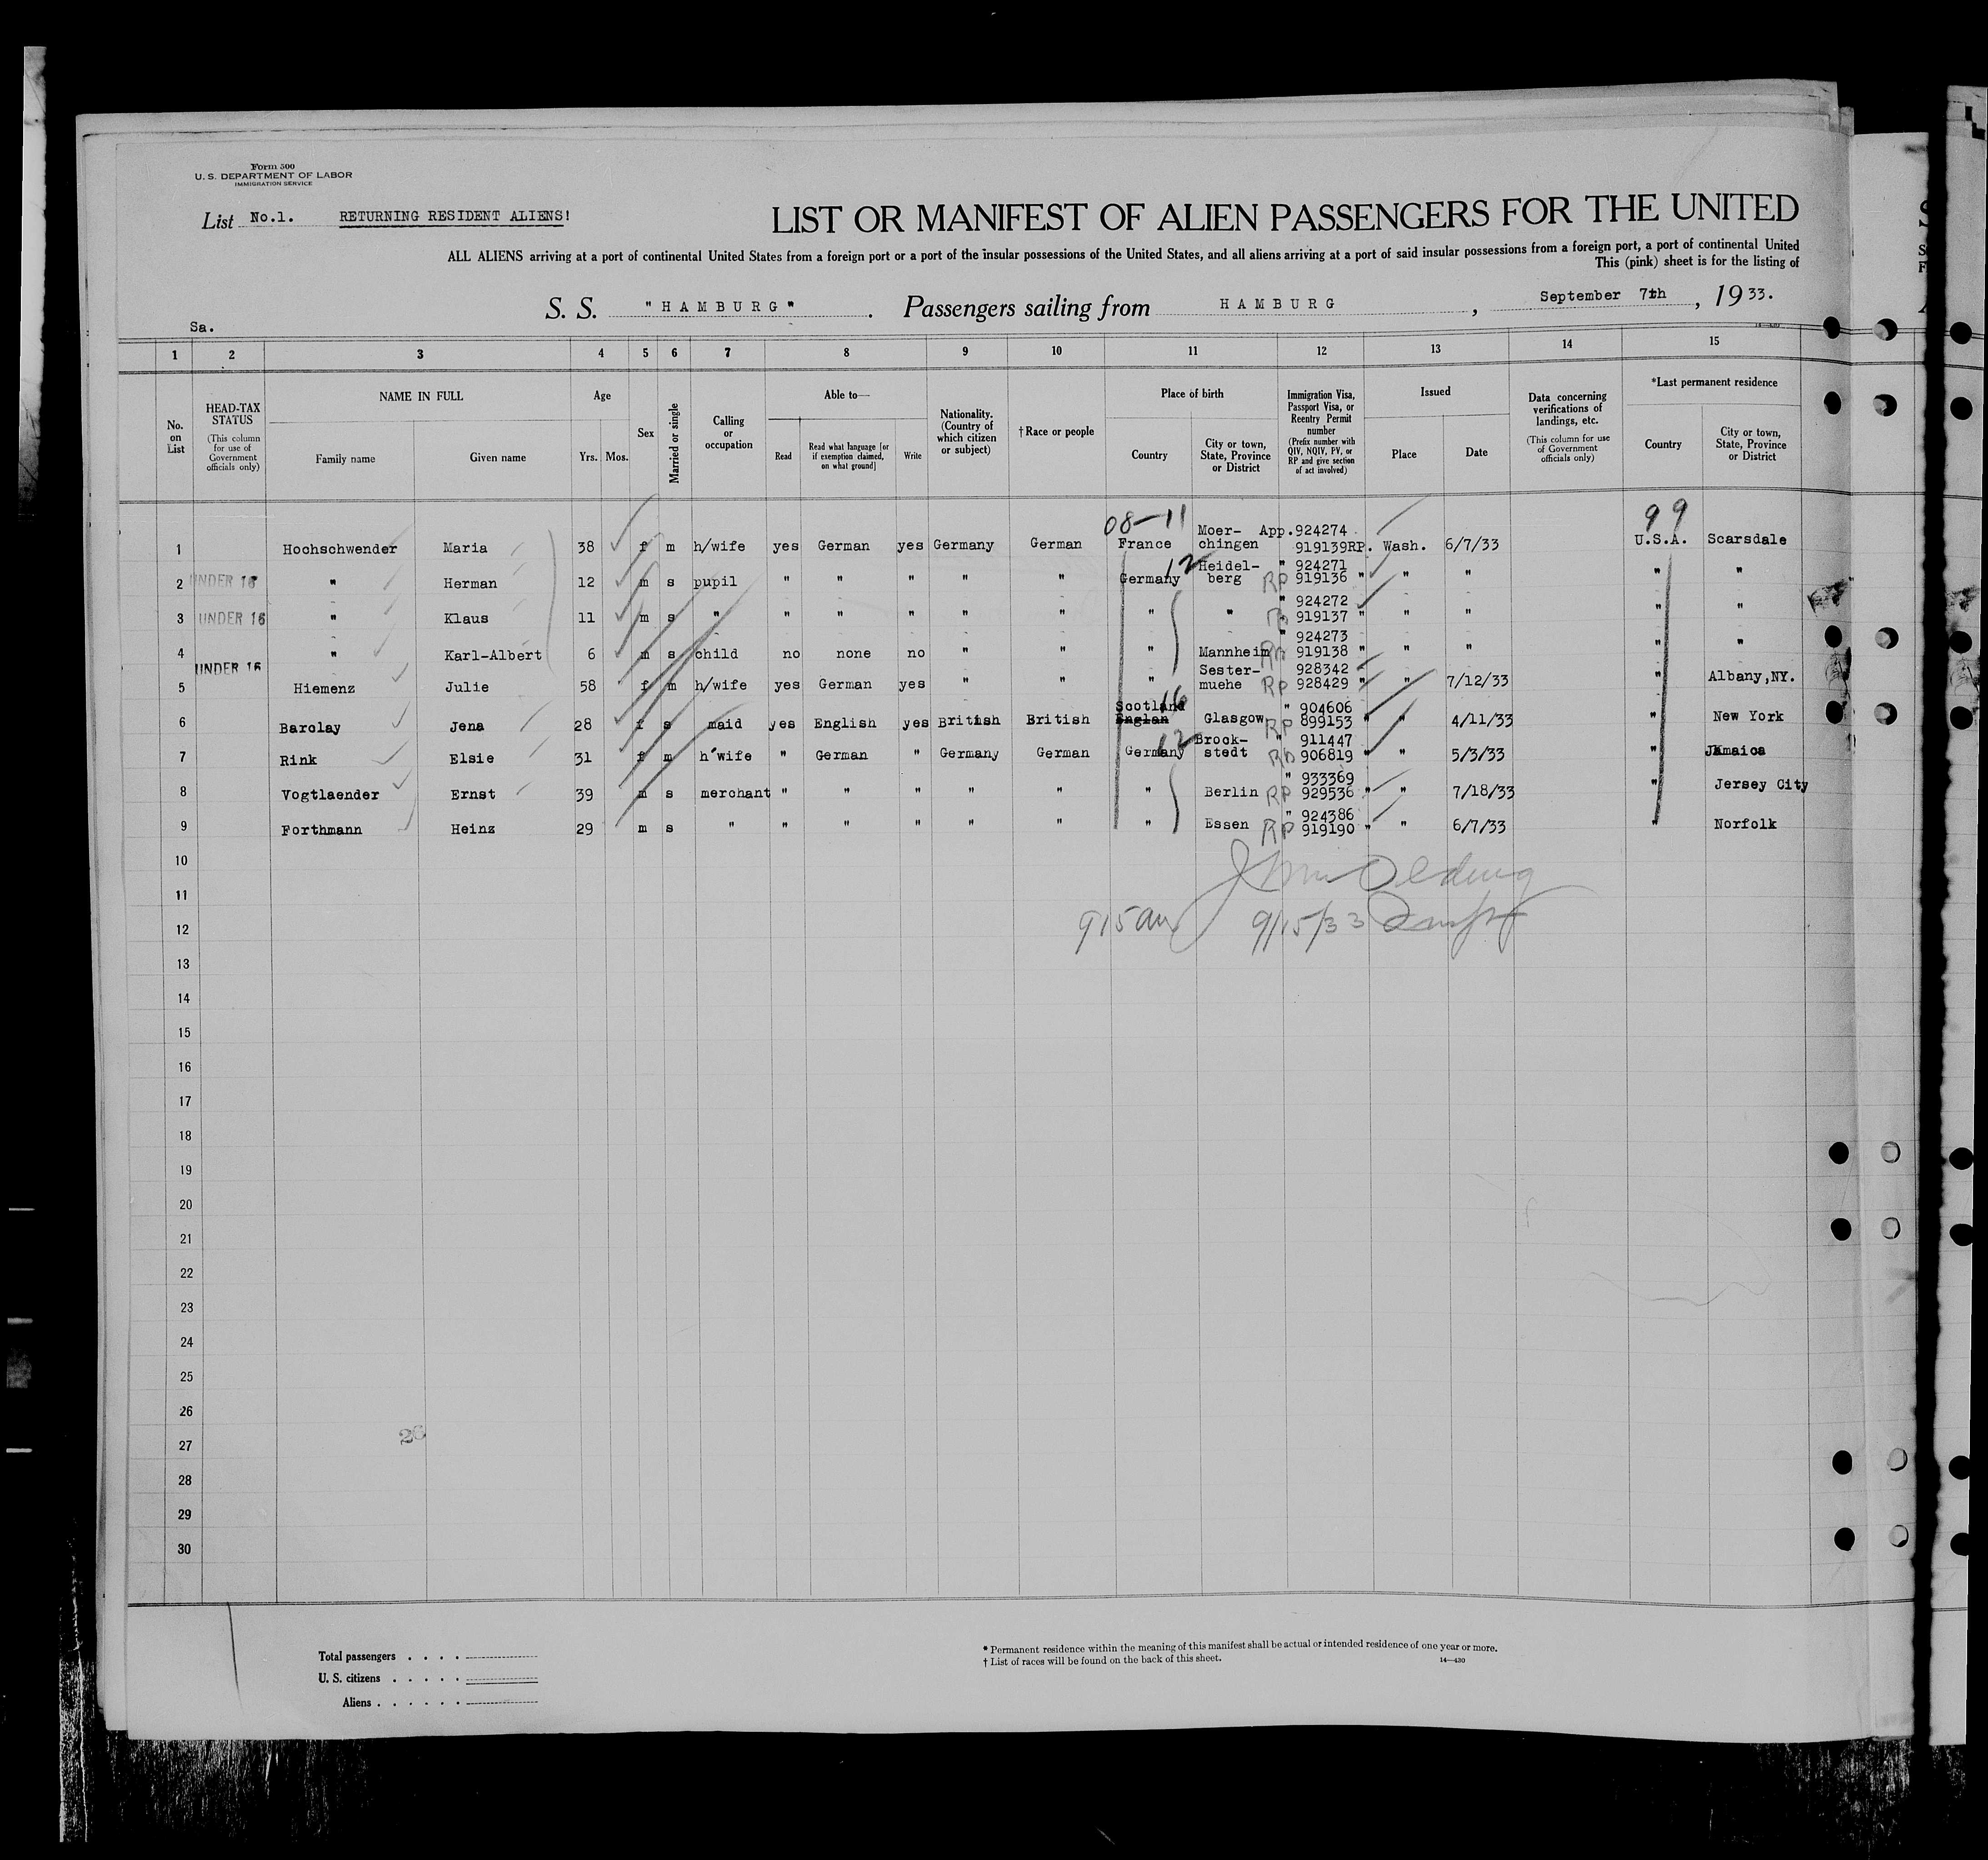 Form 500
U. S. DEPARTMENT OF LABOR
IMMIGRATION SERVICE
List No.1. RETURNING RESIDENT ALIENS!
LIST OR MANIFEST OF ALIEN PASSENGERS FOR THE UNITED
ALL ALIENS arriving at a port of continental United States from a foreign port or a port of the insular possessions of the United States, and all aliens arriving at a port of said insular possessions from a foreign port, a port of continental United
This (pink) sheet is for the listing of
S. S. "HAMBURG". Passengers sailing from HAMBURG, September 7th, 1933.
Sa.
14—430
1 2 3 4 5 6 7 8 9 10 11 12 13 14 15
No. on List
HEAD-TAX STATUS (This column for use of Government officials only)
NAME IN FULL Family name Given name
Age Yrs. Mos.
Sex
Married or single
Calling or occupation
Able to— Read Read what language [or if exemption claimed, on what ground] Write
Nationality. (Country of which citizen or subject)
†Race or people
Place of birth Country City or town, State, Province or District
Immigration Visa, Passport Visa, or Reentry Permit number (Prefix number with QIV, NQIV, PV, or RP and give section of act involved)
Issued Place Date
Data concerning verifications of landings, etc. (This column for use of Government officials only)
*Last permanent residence Country City or town, State, Province or District
08-11 99
1 Hochschwender Maria 38 f m h/wife yes German yes Germany German France Moer-chingen App. 924274 919139RP. Wash. 6/7/33 U.S.A. Scarsdale
12
2 UNDER 16 " Herman 12 m s pupil " " " " " Germany Heidel-berg " 924271 RP 919136 " " " " "
3 UNDER 16 " Klaus 11 m s " " " " " " " " " 924272 919137 " " " " "
4 UNDER 16 " Karl-Albert 6 m s child no none no " " " Mannheim " 924273 919138 " " " " "
5 Hiemenz Julie 58 f m h/wife yes German yes " " " Sester-muehe 928342 RP 928429 " " 7/12/33 " Albany,NY.
16
6 Barclay Jena 28 f s maid yes English yes British British Scotland Englan Glasgow " 904606 RP 899153 " " 4/11/33 " New York
12
7 Rink Elsie 31 f m h'wife " German " Germany German Germany Brock-stedt " 911447 RP 906819 " " 5/3/33 " Jamaica
8 Vogtlaender Ernst 39 m s merchant " " " " " " Berlin " 933369 RP 929536 " " 7/18/33 " Jersey City
9 Forthmann Heinz 29 m s " " " " " " " Essen " 924386 RP 919190 " " 6/7/33 " Norfolk
10
11
12 915am 9/15/33
13
14
15
16
17
18
19
20
21
22
23
24
25
26
27
28
29
30
Total passengers
U. S. citizens
Aliens
* Permanent residence within the meaning of this manifest shall be actual or intended residence of one year or more.
† List of races will be found on the back of this sheet.
14—430